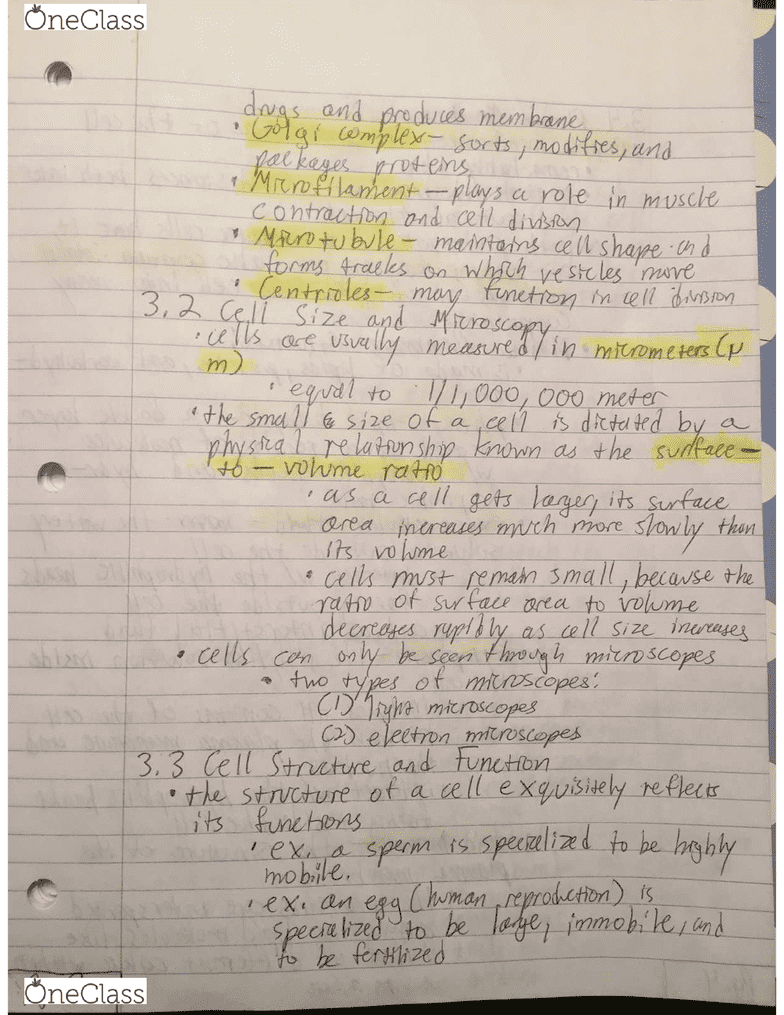 OneClass
drugs and produces membrane
• Golgi complex - sorts, modifies, and
packages proteins
• Microfilament - plays a role in muscle
contraction and cell division
• Microtubule - maintains cell shape and
forms tracks on which vesicles move
• Centrioles - may function in cell division
3.2 Cell Size and Microscopy
• cells are usually measured in micrometers (μ
m)
• equal to 1/1,000,000 meter
• the small size of a cell is dictated by a
physical relationship known as the surface-
to-volume ratio
• as a cell gets larger, its surface
area increases much more slowly than
its volume
• cells must remain small, because the
ratio of surface area to volume
decreases rapidly as cell size increases
• cells can only be seen through microscopes
• two types of microscopes:
(1) light microscopes
(2) electron microscopes
3.3 Cell Structure and Function
• the structure of a cell exquisitely reflects
its functions
• ex. a sperm is specialized to be highly
mobile.
• ex. an egg (human reproduction) is
specialized to be large, immobile, and
to be fertilized
OneClass